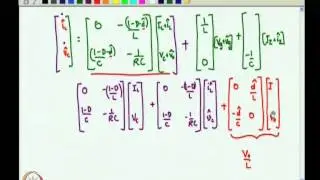 [i̇_L ; v̂̇_C] = [0 -(1-D-d̂)/L ; (1-D-d̂)/C -1/RC] [I_L+î_L ; V_C+v̂_C] + [1/L ; 0] [V_g+v̂_g] + [ -1/C] [I_z+î_z]
[0 -(1-D)/L ; 1-D/C -1/RC] [I_L ; V_C] + [0 -(1-D)/L ; 1-D/C -1/RC] [î_L ; v̂_C] + [0 d̂/L ; -d̂/C 0] [I ; V_o]
V_o/L